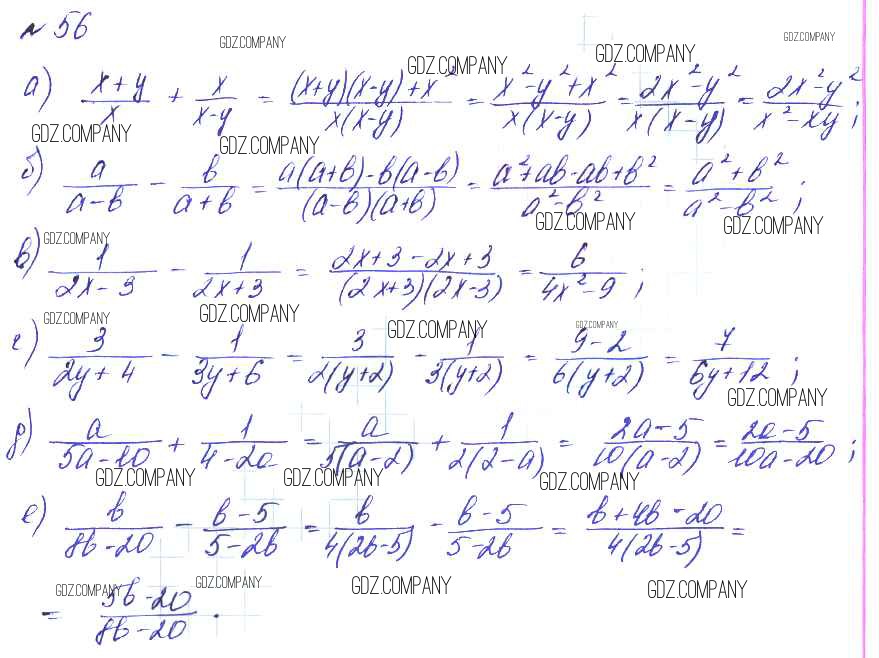 № 56
GDZ.COMPANY GDZ.COMPANY GDZ.COMPANY GDZ.COMPANY
а) (x+y)/x + x/(x-y) = ((x+y)(x-y)+x²)/(x(x-y)) = (x²-y²+x²)/(x(x-y)) = (2x²-y²)/(x(x-y)) = (2x²-y²)/(x²-xy);
GDZ.COMPANY GDZ.COMPANY
б) a/(a-b) - b/(a+b) = (a(a+b)-b(a-b))/((a-b)(a+b)) = (a²+ab-ab+b²)/(a²-b²) = (a²+b²)/(a²-b²);
GDZ.COMPANY GDZ.COMPANY GDZ.COMPANY
в) 1/(2x-3) - 1/(2x+3) = (2x+3-2x+3)/((2x+3)(2x-3)) = 6/(4x²-9);
GDZ.COMPANY GDZ.COMPANY GDZ.COMPANY GDZ.COMPANY
г) 3/(2y+4) - 1/(3y+6) = 3/(2(y+2)) - 1/(3(y+2)) = (9-2)/(6(y+2)) = 7/(6y+12);
GDZ.COMPANY
д) a/(5a-10) + 1/(4-2a) = a/(5(a-2)) + 1/(2(2-a)) = (2a-5)/(10(a-2)) = (2a-5)/(10a-20);
GDZ.COMPANY GDZ.COMPANY GDZ.COMPANY
е) b/(8b-20) - (b-5)/(5-2b) = b/(4(2b-5)) - (b-5)/(5-2b) = (b+4b-20)/(4(2b-5)) =
GDZ.COMPANY GDZ.COMPANY GDZ.COMPANY GDZ.COMPANY
= (5b-20)/(8b-20).